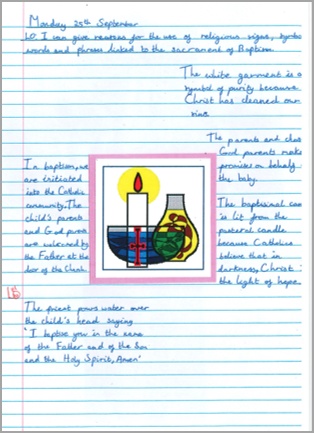 Monday 25th September
LO I can give reasons for the use of religious signs, symbo
words and phrases linked to the sacrament of Baptism.
The white garment is a
symbol of purity because
Christ has cleaned our
sins.
The parents and chos
God parents make
promises on behalf
the baby.
In baptism, we
are initiated
into the Catholic
community. The
child's parents
and God paren
are welcomed by
the Father at the
door of the Church.
The baptismal can
is lit from the
pascal candle
because Catholics
believe that in
darkness, Christ i
the light of hope.
The priest pours water over
the child's head saying
"I baptise you in the name
of the Father and of the Son
and the Holy Spirit, Amen"